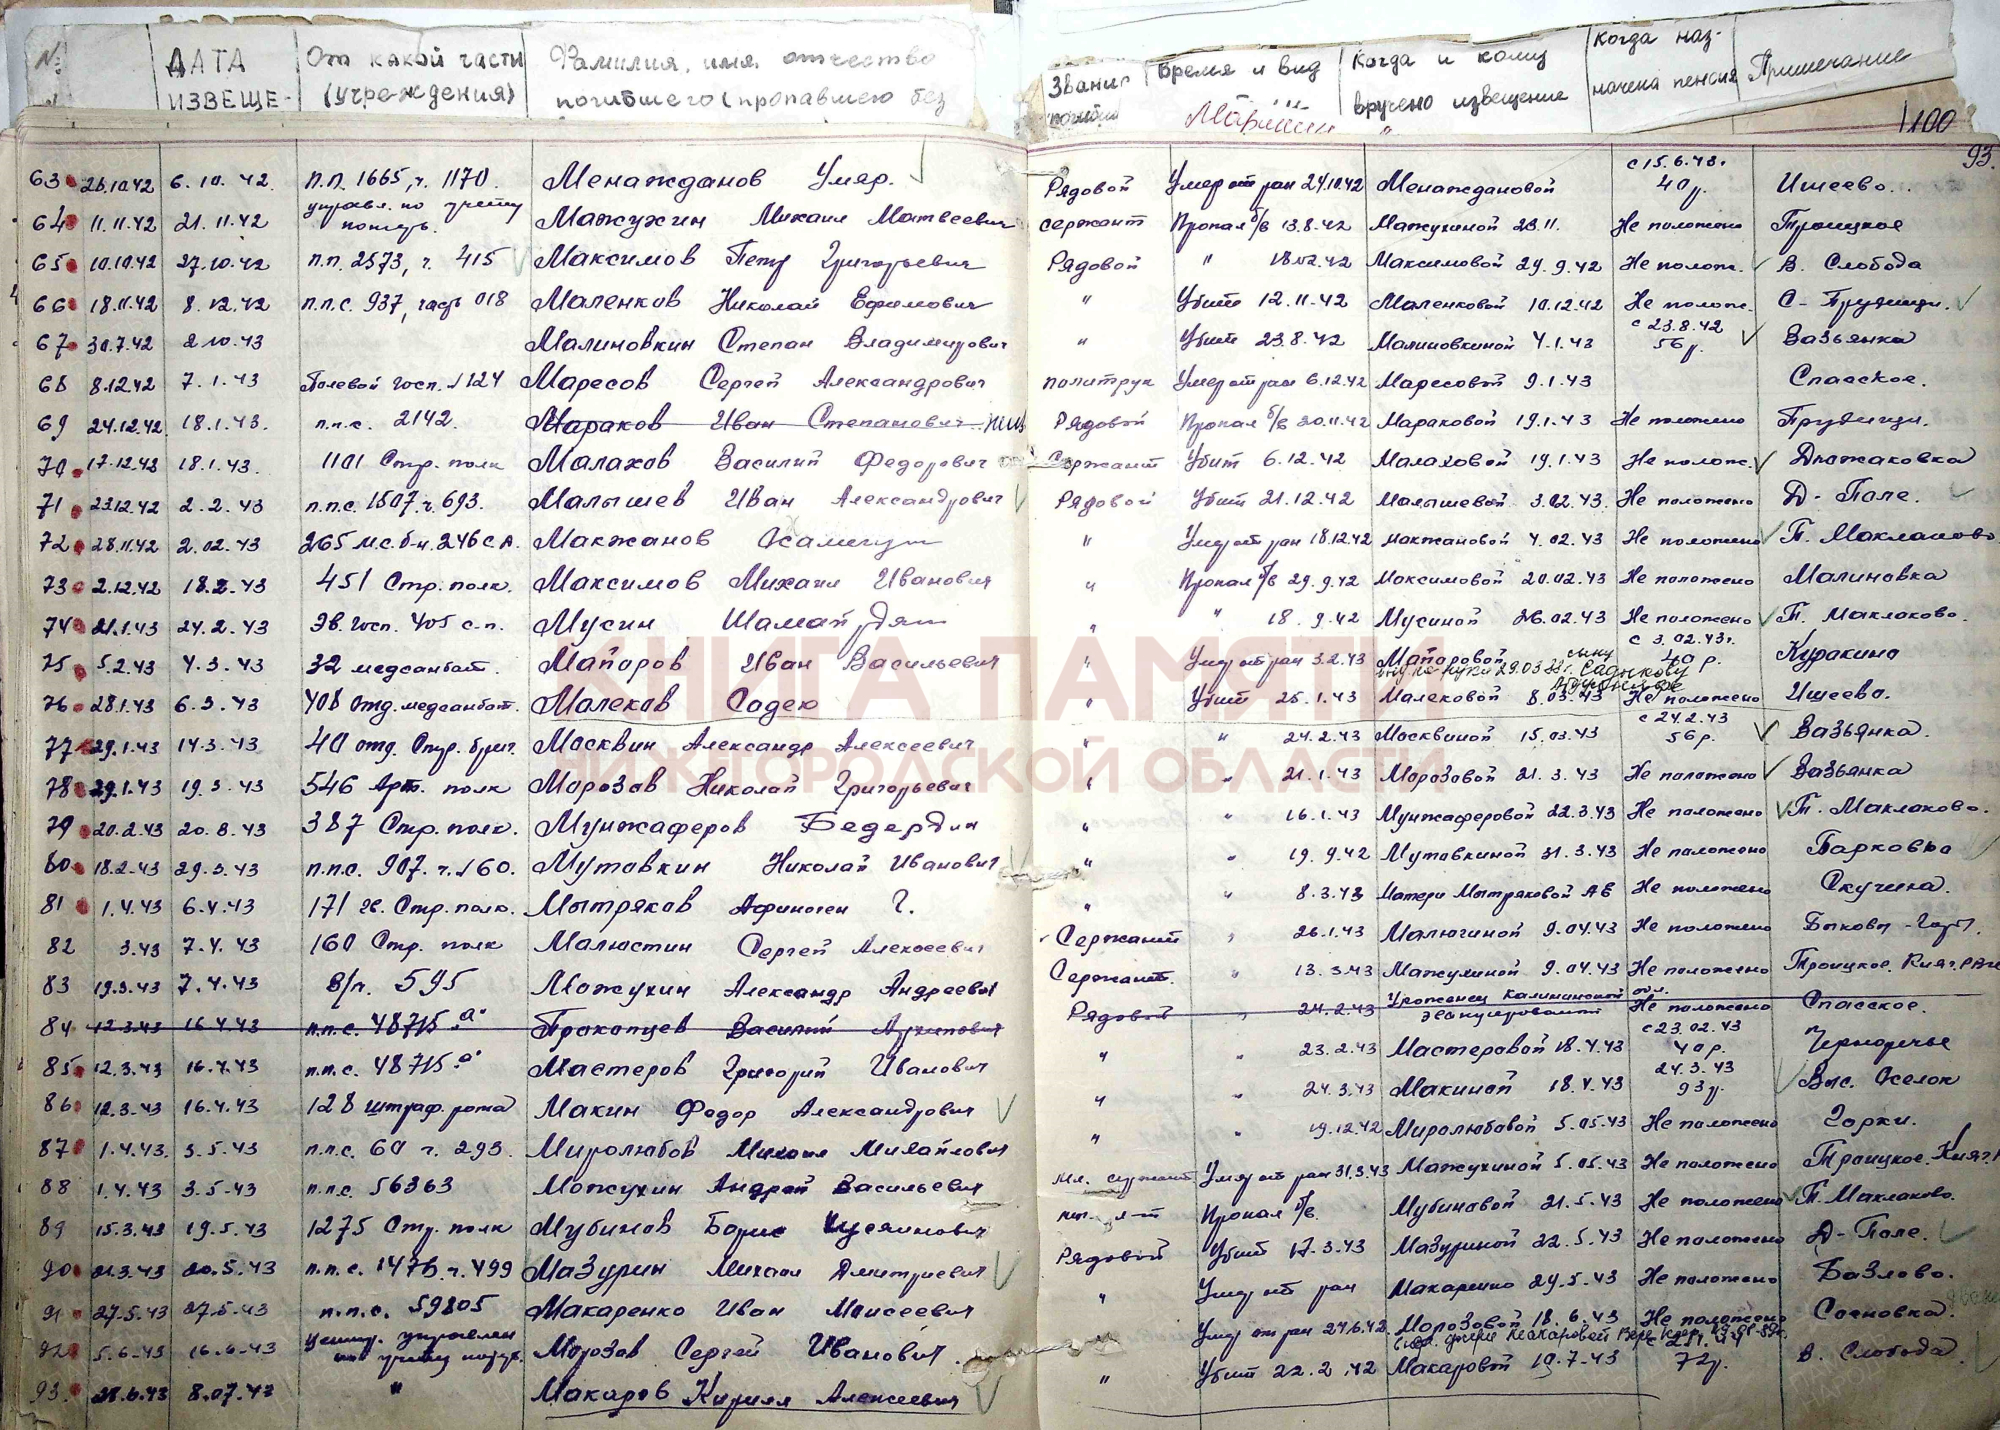 № ДАТА ИЗВЕЩЕ- От какой части (учреждения) Фамилия, имя, отчество погибшего (пропавшего без Звание погибш Время и вид Когда и кому вручено извещение Когда назначена пенсия Примечание
100
93.
63 26.10.42 6.10.42. п.п. 1665, ч. 1170. Менажданов Умяр. Рядовой Умер от ран 24.10.42 Менаждановой с 15.6.43. 40 р. Ишеево.
64 11.11.42 21.11.42 управл. по учету потерь. Мажухин Михаил Матвеевич сержант Пропал б/в 13.8.42 Мажухиной 23.11. Не положено Троицкое
65 10.10.42 27.10.42 п.п. 2573, ч. 415 Максимов Петр Григорьевич Рядовой " 18.02.42 Максимовой 29.9.42 Не полож. В. Слобода
66 18.11.42 8.12.42 п.п.с. 937, часть 018 Маленков Николай Ефимович " Убит 12.11.42 Маленковой 10.12.42 Не полож. С-Прудищи.
67 30.7.42 2.10.43 Малиновкин Степан Владимирович " Убит 23.8.42 Малиновкиной 4.1.43 с 23.8.42 56 р. Вазьянка
68 8.12.42 7.1.43 Полевой госп. 1124 Маресов Сергей Александрович политрук Умер от ран 6.12.42 Маресовой 9.1.43 Спасское.
69 24.12.42 18.1.43. п.п.с. 2142. Мараков Иван Степанович Рядовой Пропал б/в 20.11.42 Мараковой 19.1.43 Не положено Прудищи.
70. 17.12.42 18.1.43. 1101 Стр. полк Малахов Василий Федорович Сержант Убит 6.12.42 Малаховой 19.1.43 Не полож. Дмажаковка
71 23.12.42 2.2.43 п.п.с. 1507. ч. 693. Малышев Иван Александрович Рядовой Убит 21.12.42 Малышевой 3.02.43. Не положено Д-Поле.
72 28.11.42 2.02.43 265 м.с.б-н. 246 с.д. Макжанов " Умер от ран 18.12.42 Макжановой 4.02.43 Не положено Т. Маклаково
73 2.12.42 18.2.43 451 Стр. полк. Максимов Михаил Иванович " Пропал б/в 29.9.42 Максимовой 20.02.43 Не положено Малиновка
74 21.1.43 24.2.43 Эв. госп. 405 с.п. Мусин " " 18.9.42 Мусиной 26.02.43 Не положено Т. Маклаково.
75 5.2.43 4.3.43 32 медсанбат. Майоров Иван Васильевич " Умер от ран 3.2.43 Майоровой с 3.02.43г. 40 р. Куракино
76 28.1.43 6.3.43 408 отд. медсанбат. Малеков Садек " Убит 25.1.43 Малековой 8.03.43 Не положено Ишеево.
77 29.1.43 14.3.43 40 отд. Стр. бриг. Москвин Александр Алексеевич " " 24.2.43 Москвиной 15.03.43 с 24.2.43 56 р. Вазьянка.
78 29.1.43 19.3.43 546 Арт. полк Морозов Николай Григорьевич " " 21.1.43 Морозовой 21.3.43 Не положено Вазьянка
79 20.2.43 20.3.43 387 Стр. полк. Мунжаферов Бедердин " " 16.1.43 Мунжаферовой 22.3.43 Не положено Т. Маклаково.
80 18.2.43 29.3.43 п.п.с. 907. ч. 160. Мутовкин Николай Иванович " " 19.9.42 Мутовкиной 31.3.43 Не положено Барковка
81 1.4.43 6.4.43 171 гв. Стр. полк. Мытряков Афиноген Г. " " 8.3.43 Матери Мытряковой АВ Не положено Скучиха.
82 3.43 7.4.43 160 Стр. полк Малюгин Сергей Алексеевич Сержант " 26.1.43 Малюгиной 9.04.43 Не положено Быковы-Горы.
83 19.3.43 7.4.43 в/ч. 595 Мажухин Александр Андреевич Сержант. " 13.3.43 Мажухиной 9.04.43 Не положено Троицкое.
84 12.3.43 16.4.43 п.п.с. 48715 "а" Прокопцев Василий Архипович Рядовой " 24.2.43 Уроженец Калининской обл. эвакуированный Не положено Спасское.
85 12.3.43 16.4.43 п.п.с. 48715 "а" Мастеров Григорий Иванович " " 23.2.43 Мастеровой 18.4.43 с 23.02.43 40 р. Черноречье
86 12.3.43 16.4.43 128 штраф. рота Макин Федор Александрович " " 24.3.43 Макиной 18.4.43 24.3.43 93 р. Выс. Оселок
87 1.4.43. 3.5.43 п.п.с. 60 ч. 293. Миролюбов Михаил Михайлович " " 19.12.42 Миролюбовой 5.05.43 Не положено Горки.
88 1.4.43 3.5.43 п.п.с. 56363 Мажухин Андрей Васильевич мл. сержант Умер от ран 31.3.43 Мажухиной 5.05.43 Не положено Троицкое.
89 15.3.43 19.5.43 1275 Стр. полк Мубинов Борис Хусяинович Пропал б/в. Мубиновой 21.5.43 Не положено Т. Маклаково.
90 21.3.43 20.5.43 п.п.с. 1476. ч. 499 Мазурин Михаил Дмитриевич Рядовой Убит 17.3.43 Мазуриной 22.5.43 Не положено Д-Поле.
91 27.5.43 27.5.43 п.п.с. 59805 Макаренко Иван Моисеевич " Умер от ран Макаренко 29.5.43 Не положено Базлово.
92 5.6.43 16.6.43 Центр. управлен по учету потерь. Морозов Сергей Иванович Умер от ран 27.6.42. Морозовой 18.6.43 Не положено Сосновка.
93. 28.6.43 8.07.43 " Макаров Кирилл Алексеевич " Убит 22.2.42 Макаровой 10.7.43 72 р. В. Слобода
КНИГА ПАМЯТИ
НИЖЕГОРОДСКОЙ ОБЛАСТИ